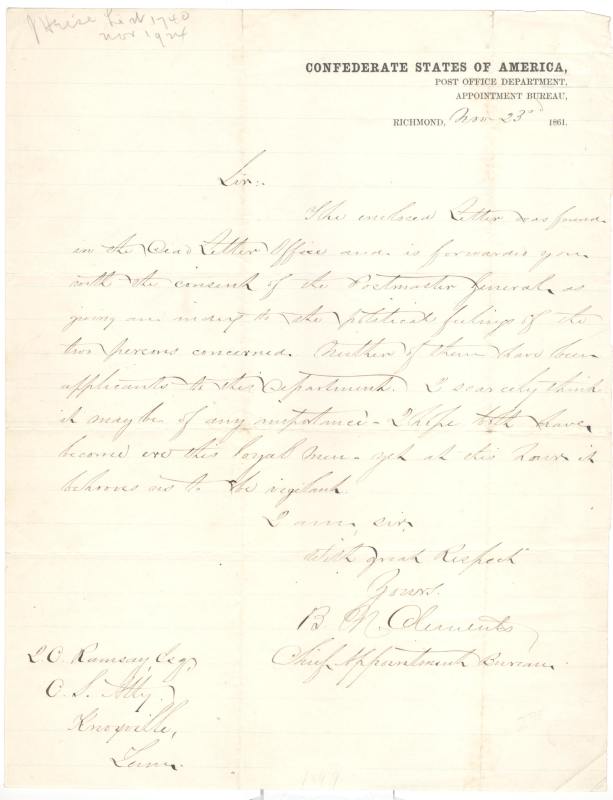 Nov 1924
CONFEDERATE STATES OF AMERICA,
POST OFFICE DEPARTMENT,
APPOINTMENT BUREAU,
RICHMOND, Nov 23rd 1861.
Sir:
The enclosed Letter was found
in the Dead Letter Office and is forwarded you
with the consent of the Postmaster General, as
giving an index to the political feelings of the
two persons concerned. Neither of them have been
applicants to this Department. I scarcely think
it may be of any importance - I hope both have
become ere this loyal men - yet at this hour it
behooves us to be vigilant.
I am, sir,
With great Respect
Yours.
B. N. Clements
Chief Appointment Bureau.
Ramsay, Esq,
C. S. Atty.
Knoxville,
Tenn.